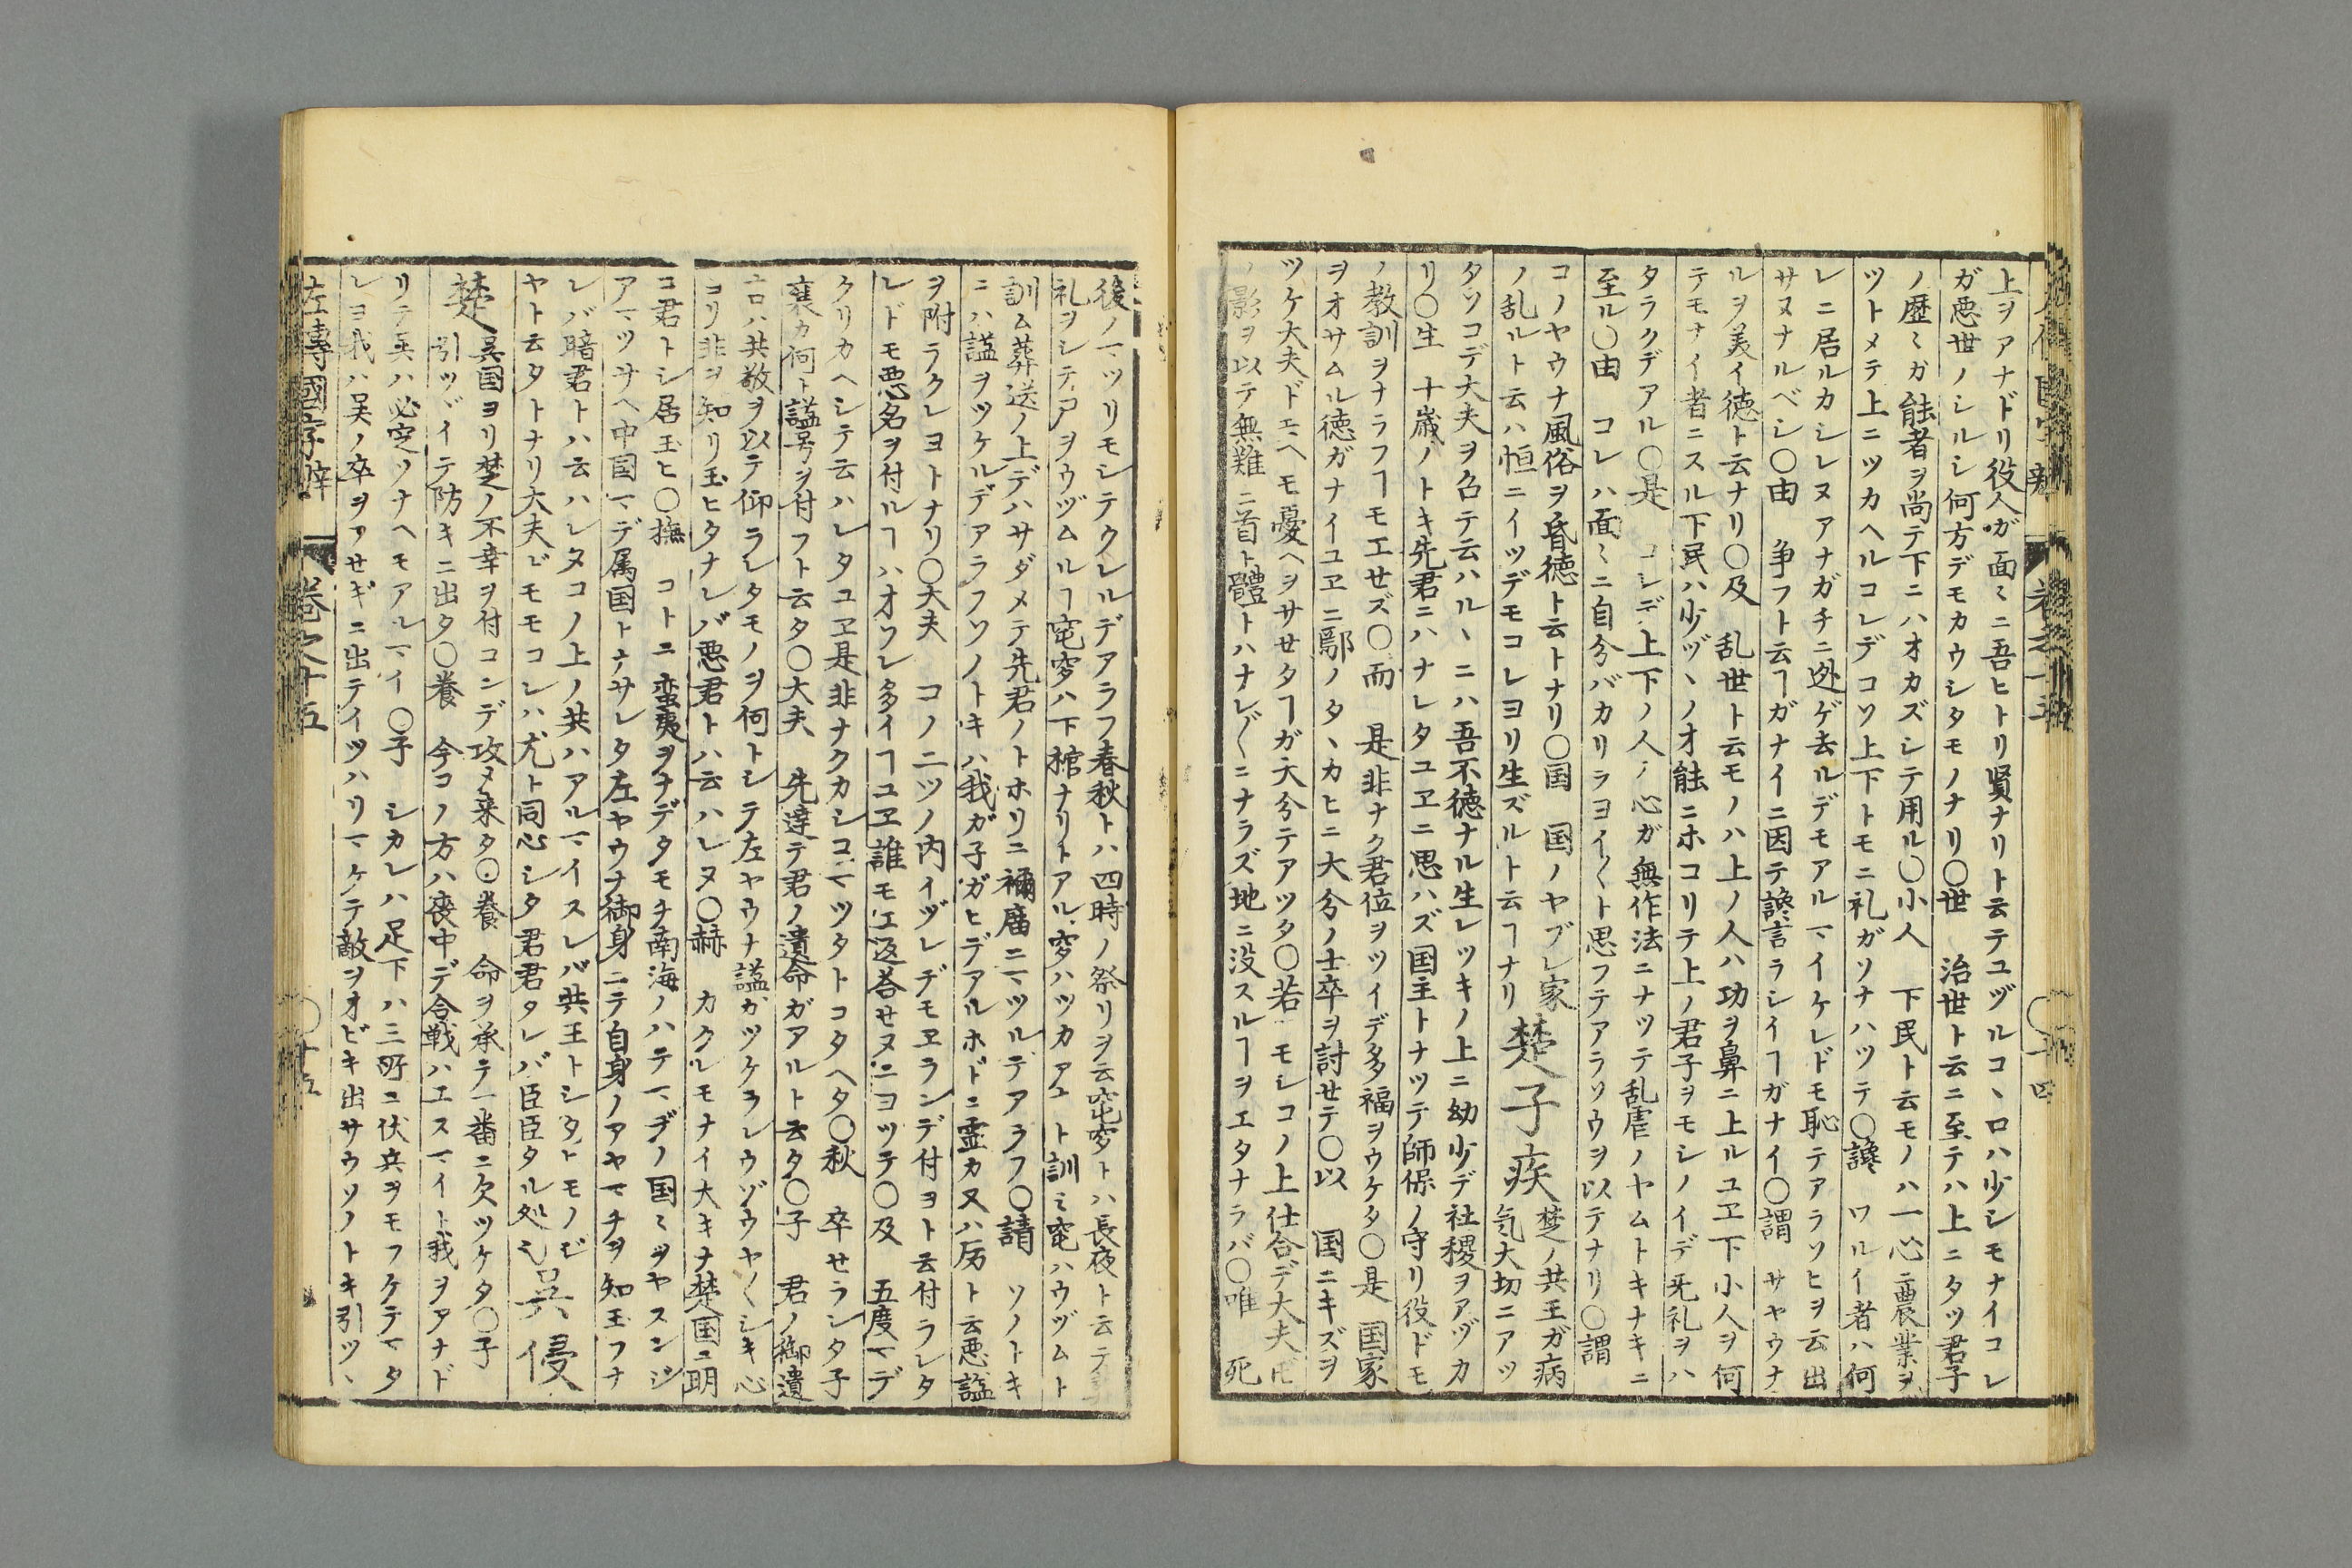 上ヲアナドリ役人ガ面〻ニ吾ヒトリ賢ナリト云テユヅルコヽロハ少シモナイコレ
ガ悪世ノシルシ何方デモカウシタモノナリ〇世 治世ト云ニ至テハ上ニタツ君子
ノ歴〻ガ能者ヲ尚テ下ニハオカズシテ用ル〇小人 下民ト云モノハ一心ニ農業ヲ
ツトメテ上ニツカヘルコレデコソ上下トモニ礼ガソナハツテ〇讒 ワルイ者ハ何
レニ居ルカシレヌアナガチニ迯ゲ去ルデモアルマイケレドモ恥テアラソヒヲ云出
サヌナルベシ〇由 争フト云ヿガナイニ因テ讒言ラシイヿガナイ〇謂 サヤウナ
ルヲ美イ徳ト云ナリ〇及 乱世ト云モノハ上ノ人ハ功ヲ鼻ニ上ルユヱ下小人ヲ何
テモナイ者ニスル下民ハ少ヅヽノオ能ニホコリテ上ノ君子ヲモシノイデ旡礼ヲハ
タラクデアル〇是 コレデ上下ノ人ノ心ガ無作法ニナツテ乱虐ノヤムトキナキニ
至ル〇由 コレハ面〻ニ自分バカリヲヨイ〱ト思フテアラソウヲ以テナリ〇謂
コノヤウナ風俗ヲ昏徳ト云トナリ〇国 国ノヤブレ家
ノ乱ルト云ハ恒ニイツデモコレヨリ生ズルト云ヿナリ
楚子疾
楚ノ共王ガ病
気大切ニアツ
タソコデ大夫ヲ召テ云ハルヽニハ吾不徳ナル生レツキノ上ニ幼少デ社稷ヲアヅカ
リ〇生 十歳ノトキ先君ニハナレタユヱニ思ハズ国主トナツテ師保ノ守リ役ドモ
ノ教訓ヲナラフヿモエせズ〇而 是非ナク君位ヲツイデ多福ヲウケタ〇是 国家
ヲオサムル徳ガナイユヱニ鄢ノタヽカヒニ大分ノ士卒ヲ討せテ〇以 国ニキズヲ
ツケ大夫ドモヘモ憂ヘヲサせタヿガ大分テアツタ〇若 モシコノ上仕合デ大夫𪜈
ノ影ヲ以テ無難ニ首ト體トハナレ〲ニナラズ地ニ没スルヿヲエタナラバ〇唯 死
後ノマツリモシテクレルデアラフ春秋トハ四時ノ祭リヲ云窀穸トハ長夜ト云テ
礼ヲシテヲウヅムルヿ窀穸ハ下棺ナリトアル穸ハツカアナト訓ミ窀ハウヅムト
訓ム葬送ノ上デハサダメテ先君ノトホリニ禰庿ニマツルデアラフ〇請 ソノトキ
ニハ謚ヲツケルデアラフソノトキハ我ガ子ガヒデアルホドニ霊カ又ハ厉ト云悪謚
ヲ附ラクレヨトナリ〇大夫 コノ二ツノ内イヅレデモヱランデ付ヨト云付ラレタ
レドモ悪名ヲ付ルヿハオソレ多イヿユヱ誰モエ返荅せヌニヨツテ〇及 五度マデ
クリカヘシテ云ハレタユヱ是非ナクカシコマツタトコタヘタ〇秋 卒せラレタ子
襄カ何ト謚号ヲ付フト云タ〇大夫 先達テ君ノ遺命ガアルト云タ〇子 君ノ御遺
言ロハ共敬ヲ以テ仰ラレタモノヲ何トシテ左ヤウナ謚ガツケラレウゾウヤ〱シキ心
ヨリ非ヲ知リ玉ヒタナレバ悪君トハ云ハレヌ〇赫 カクレモナイ大キナ楚国ニ明
コ君トシ居玉ヒ〇撫 コトニ蛮夷ヲナデタモチ南海ノハテマデノ国〻ヲヤスンジ
アマツサヘ中国マデ属国トナサレタ左ヤウナ御身ニテ自身ノアヤマチヲ知玉フナ
レバ暗君トハ云ハレヌコノ上ノ共ハアルマイスレバ共王トシタトモノゾ
ヤト云タトナリ大夫ドモモコレハ尤ト同心シタ君君タレバ臣臣タル処也
呉侵
楚
呉国ヨリ楚ノ不幸ヲ付コンデ攻メ来タ〇養 命ヲ承テ一番ニ欠ツケタ〇子
引ツヾイテ防キニ出タ〇養 今コノ方ハ喪中デ合戦ハエスマイト我ヲアナド
リテ呉ハ必定ソナヘモアルマイ〇子 シカレハ足下ハ三所ニ伏兵ヲモフケテマタ
レヨ我ハ呉ノ卒ヲアせギニ出テイツハリマケテ敵ヲオビキ出サウソノトキ引ツヽ
左傳國字辯 巻之十五 〇十五